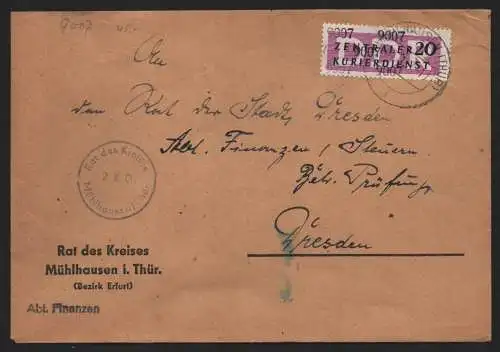 9007
9007 9007
ZENTRALER 20
KURIERDIENST
An
den Rat der Stadt Dresden
Abt. Finanzen / Steuern
Betr. Prüfung
Dresden
Rat des Kreises
Mühlhausen i. Thür.
Rat des Kreises
Mühlhausen i. Thür.
(Bezirk Erfurt)
Abt. Finanzen